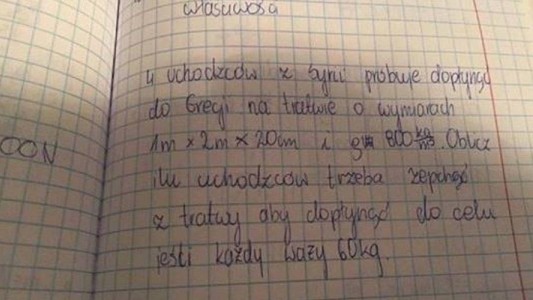 własnwość
4 uchodzców z Syrii próbuje dopłynąć
do Grecji na tratwie o wymiarach
OON 1m x 2m x 20cm i g= 800 kg/m³. Oblicz
ilu uchodzców trzeba zepchąć
z tratwy aby dopłynąć do celu
jeśli każdy waży 60kg.